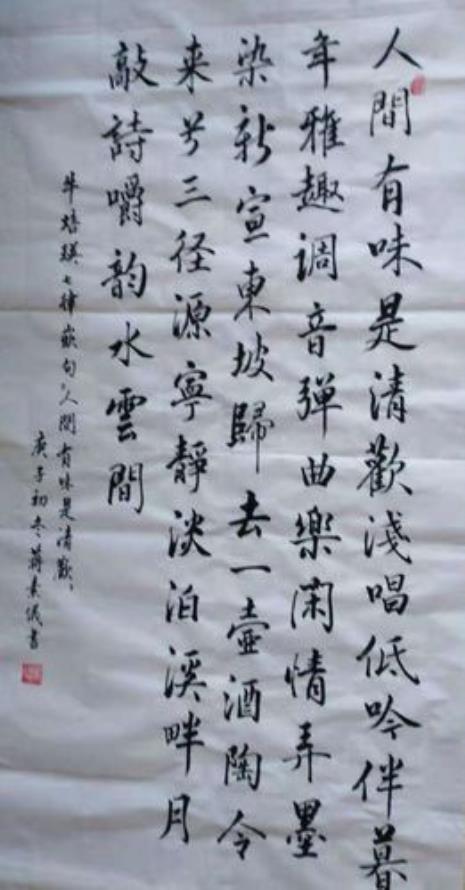 人間有味是清歡淺唱低吟伴暮
年雅趣调音弹曲樂闲情弄墨
染新宣東坡歸去一壺酒陶令
来兮三径源寧靜淡泊溪畔月
敲詩嚼韵水雲間
牛培瑛七律嵌句“人间有味是清歡”
庚子初冬蒋素儀書